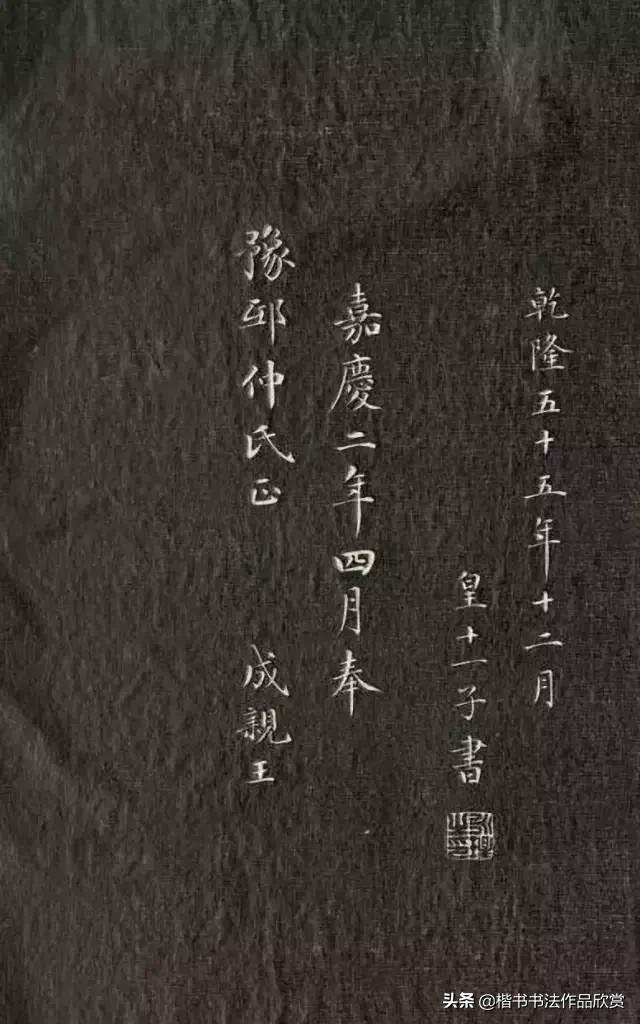 乾隆五十五年十二月
皇十一子書
永瑆之印
嘉慶二年四月奉
豫邨仲氏正 成親王
头条 @楷书书法作品欣赏